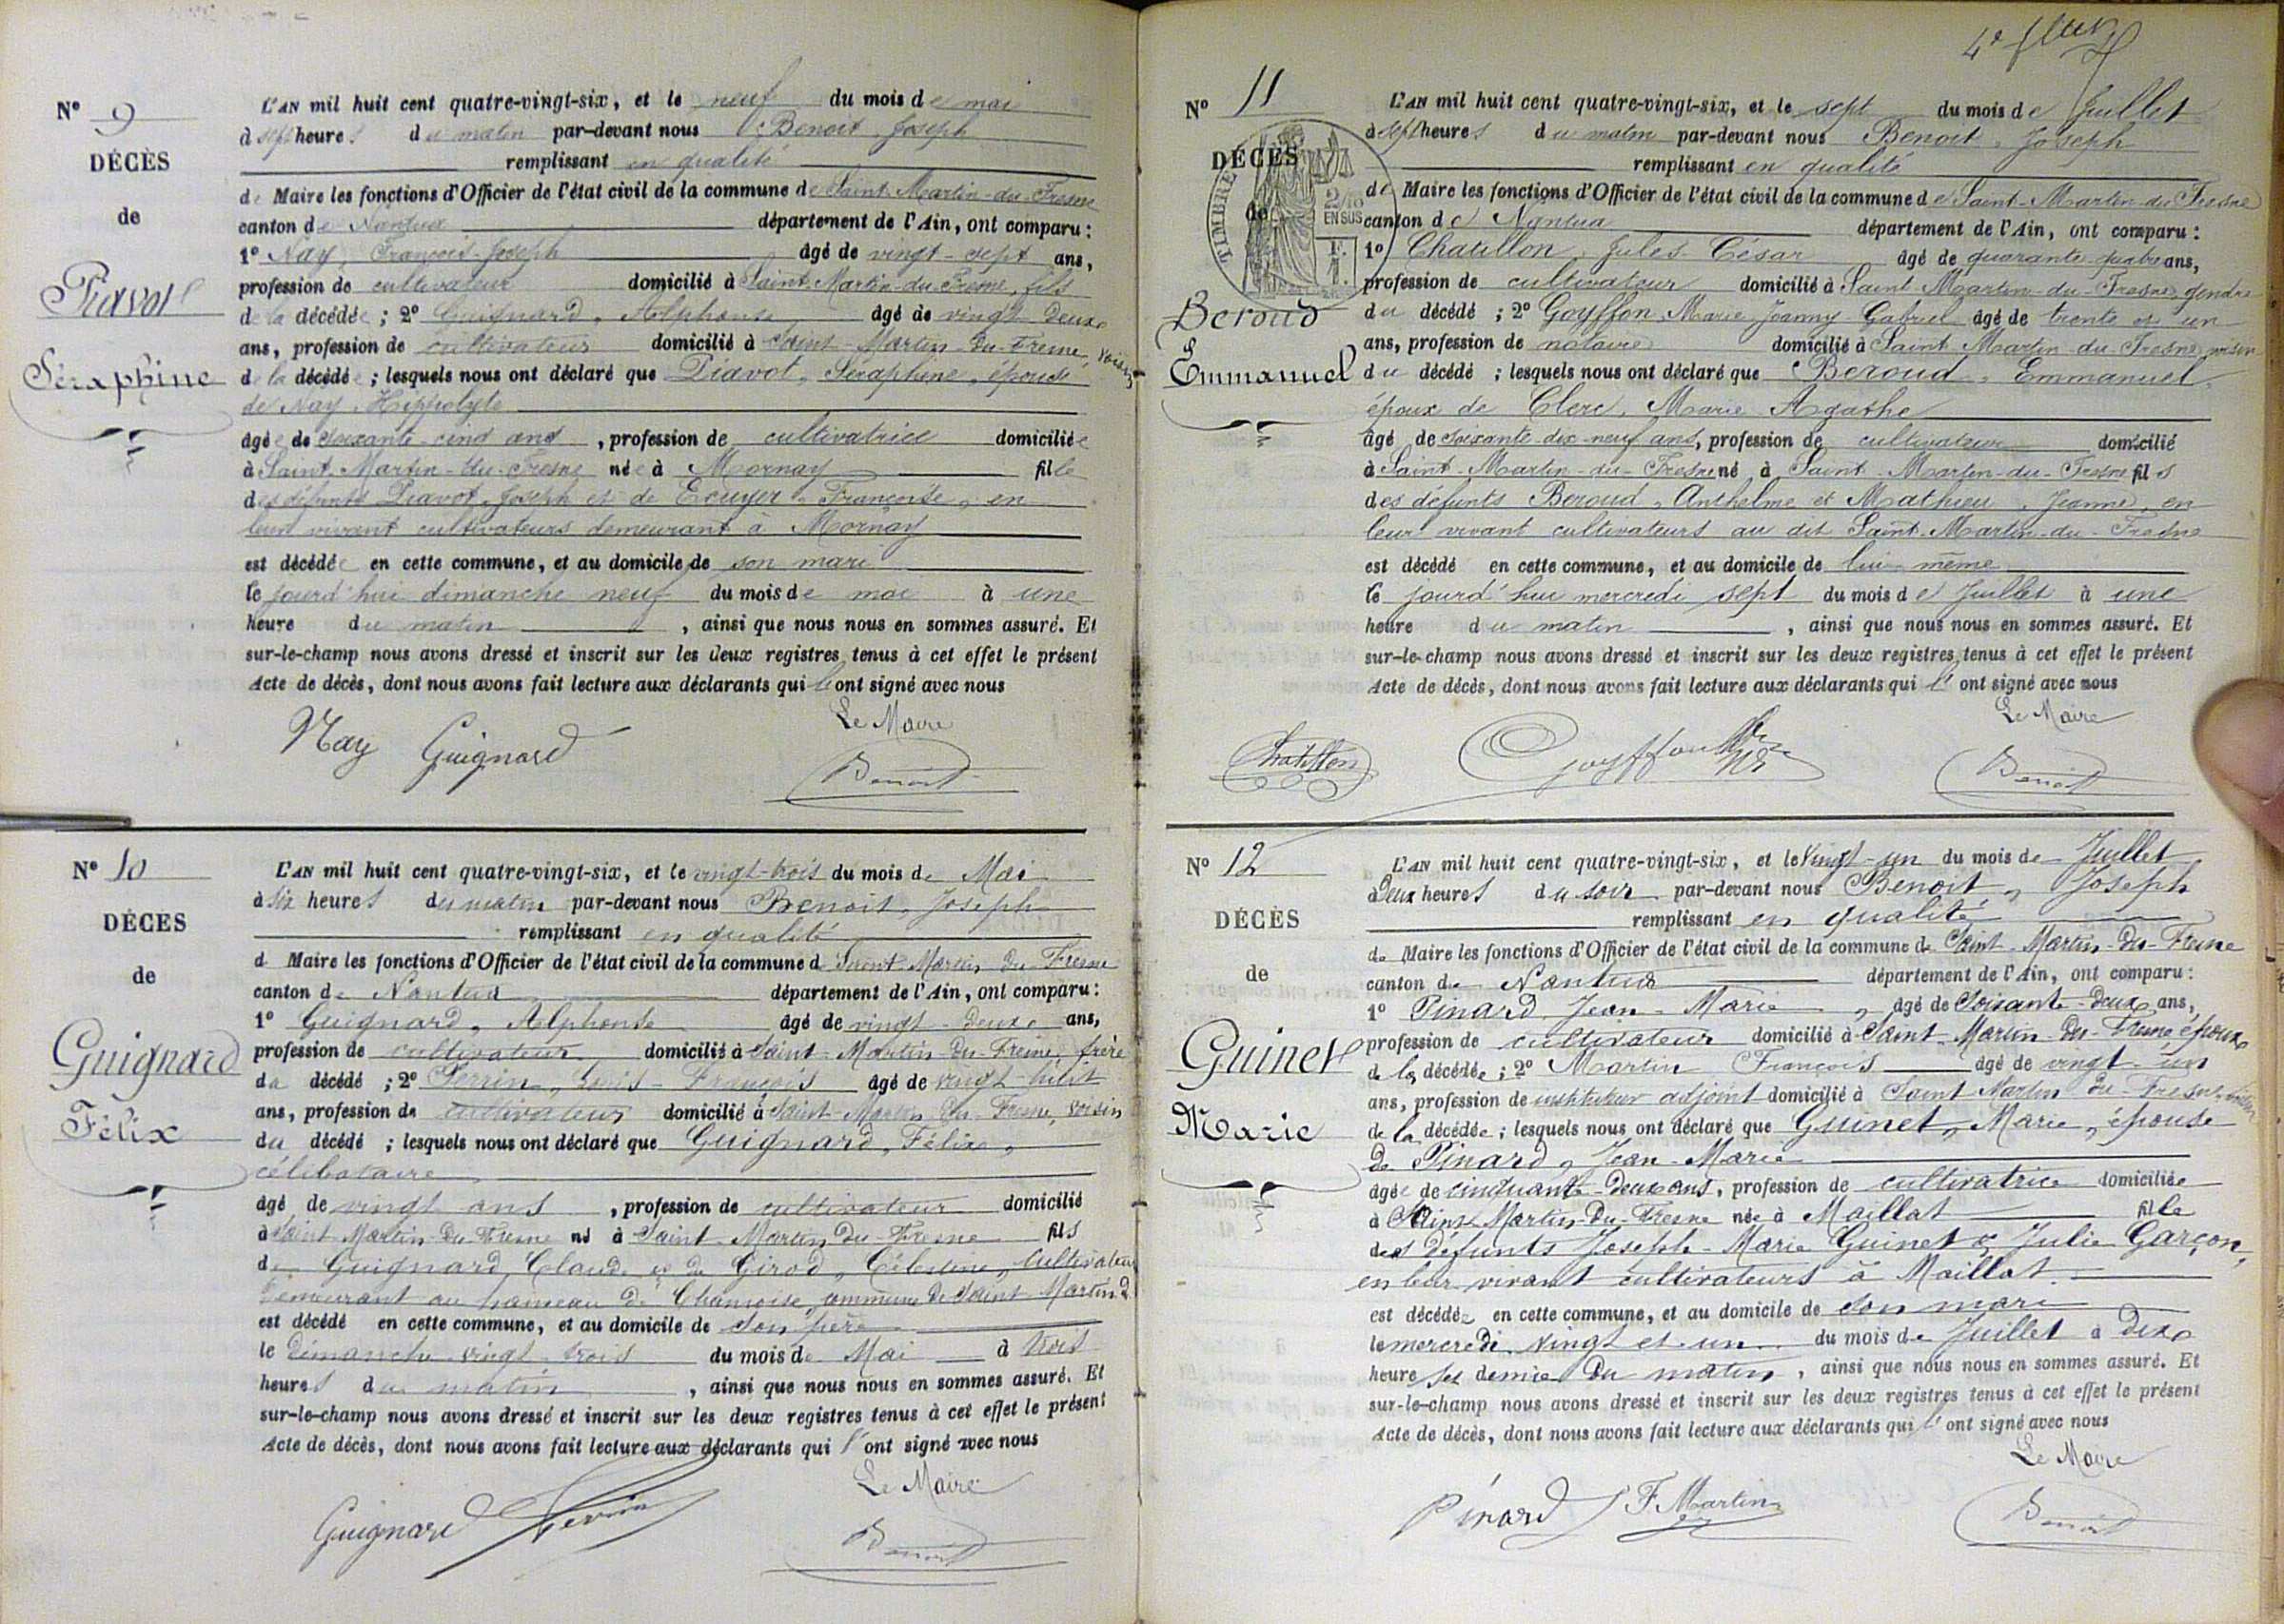 N° 9
DÉCÈS
de
Piavot
Séraphine
L'AN mil huit cent quatre-vingt-six, et le neuf du mois de mai
à sept heures du matin par-devant nous Benoit, Joseph
remplissant en qualité
de Maire les fonctions d'Officier de l'état civil de la commune de Saint-Martin-du-Fresne
canton de Nantua département de l'Ain, ont comparu :
1° Nay, François-Joseph âgé de vingt-sept ans,
profession de cultivateur domicilié à Saint-Martin-du-Fresne, fils
de la décédée ; 2° Guignard, Alphonse âgé de vingt-deux
ans, profession de cultivateur domicilié à Saint-Martin-du-Fresne, voisin
de la décédée ; lesquels nous ont déclaré que Piavot, Séraphine, épouse
de Nay, Hippolyte
âgée de soixante-cinq ans, profession de cultivatrice domiciliée
à Saint-Martin-du-Fresne née à Mornay fille
des défunts Piavot, Joseph et de Ecuyer, Françoise, en
leur vivant cultivateurs demeurant à Mornay
est décédée en cette commune, et au domicile de son mari
le jourd'hui dimanche neuf du mois de mai à une
heure du matin, ainsi que nous nous en sommes assuré. Et
sur-le-champ nous avons dressé et inscrit sur les deux registres tenus à cet effet le présent
Acte de décès, dont nous avons fait lecture aux déclarants qui l'ont signé avec nous
Le Maire
Nay Guignard
Benoit
N° 10
DÉCÈS
de
Guignard
Félix
L'AN mil huit cent quatre-vingt-six, et le vingt-trois du mois de Mai
à six heures du matin par-devant nous Benoit, Joseph
remplissant en qualité
d Maire les fonctions d'Officier de l'état civil de la commune de Saint-Martin-du-Fresne
canton de Nantua département de l'Ain, ont comparu :
1° Guignard, Alphonse âgé de vingt-deux ans,
profession de cultivateur domicilié à Saint-Martin-du-Fresne, frère
du décédé ; 2° Perrin, Louis-François âgé de vingt-huit
ans, profession de cultivateur domicilié à Saint-Martin-du-Fresne, voisin
du décédé ; lesquels nous ont déclaré que Guignard, Félix,
célibataire
âgé de vingt ans, profession de cultivateur domicilié
à Saint-Martin-du-Fresne né à Saint-Martin-du-Fresne fils
de Guignard, Claude et de Girod, Célestine, cultivateurs
demeurant au hameau de Chamoise, commune de Saint-Martin d.
est décédé en cette commune, et au domicile de son père
le dimanche vingt-trois du mois de Mai à trois
heures du matin, ainsi que nous nous en sommes assuré. Et
sur-le-champ nous avons dressé et inscrit sur les deux registres tenus à cet effet le présent
Acte de décès, dont nous avons fait lecture aux déclarants qui l'ont signé avec nous
Le Maire
Guignard Perrin
Benoit
4e
N° 11
DÉCÈS
de
TIMBRE
2/10
EN SUS
1 F.
Beroud
Emmanuel
L'AN mil huit cent quatre-vingt-six, et le sept du mois de Juillet
à sept heures du matin par-devant nous Benoit, Joseph
remplissant en qualité
de Maire les fonctions d'Officier de l'état civil de la commune de Saint-Martin-du-Fresne
canton de Nantua département de l'Ain, ont comparu :
1° Chatillon, Jules César âgé de quarante-quatre ans,
profession de cultivateur domicilié à Saint-Martin-du-Fresne, gendre
du décédé ; 2° Goyffon, Marie Joanny Gabriel âgé de trente et un
ans, profession de notaire domicilié à Saint Martin-du-Fresne voisin
du décédé ; lesquels nous ont déclaré que Beroud, Emmanuel,
époux de Clerc, Marie Agathe
âgé de soixante dix-neuf ans, profession de cultivateur domicilié
à Saint-Martin-du-Fresne né à Saint-Martin-du-Fresne fils
des défunts Beroud, Anthelme et Mathieu, Jeanne, en
leur vivant cultivateurs au dit Saint-Martin-du-Fresne
est décédé en cette commune, et au domicile de lui-même
le jourd'hui mercredi sept du mois de Juillet à une
heure du matin, ainsi que nous nous en sommes assuré. Et
sur-le-champ nous avons dressé et inscrit sur les deux registres tenus à cet effet le présent
Acte de décès, dont nous avons fait lecture aux déclarants qui l'ont signé avec nous
Le Maire
Chatillon Goyffon
Benoit
N° 12
DÉCÈS
de
Guinet
Marie
L'AN mil huit cent quatre-vingt-six, et le vingt-un du mois de Juillet
à Deux heures du soir par-devant nous Benoit, Joseph
remplissant en qualité
de Maire les fonctions d'Officier de l'état civil de la commune de Saint-Martin-du-Fresne
canton de Nantua département de l'Ain, ont comparu :
1° Pinard, Jean-Marie, âgé de soixante-deux ans,
profession de cultivateur domicilié à Saint-Martin-du-Fresne, époux
de la décédée ; 2° Martin François âgé de vingt-un
ans, profession de instituteur adjoint domicilié à Saint Martin du Fresne voisin
de la décédée ; lesquels nous ont déclaré que Guinet, Marie, épouse
de Pinard, Jean-Marie
âgée de cinquante-deux ans, profession de cultivatrice domiciliée
à Saint-Martin-du-Fresne née à Maillat fille
des défunts Joseph-Marie Guinet & Julie Garçon,
en leur vivant cultivateurs à Maillat.
est décédée en cette commune, et au domicile de son mari
le mercredi vingt et un du mois de Juillet à dix
heures et demie du matin, ainsi que nous nous en sommes assuré. Et
sur-le-champ nous avons dressé et inscrit sur les deux registres tenus à cet effet le présent
Acte de décès, dont nous avons fait lecture aux déclarants qui l'ont signé avec nous
Le Maire
Pinard F. Martin
Benoit